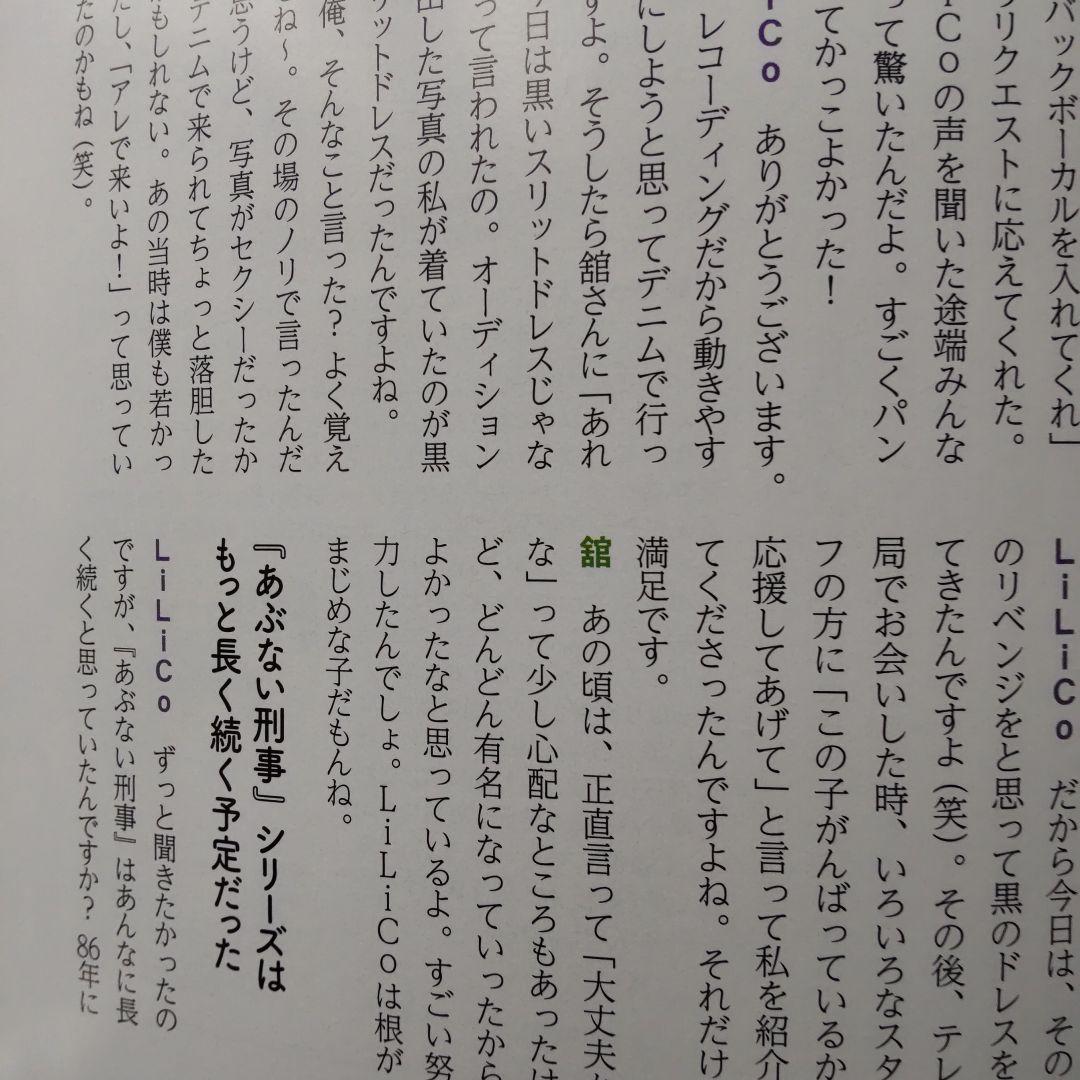 バックボーカルを入れてくれ」
リクエストに応えてくれた。
iCoの声を聞いた途端みんな
って驚いたんだよ。すごくパン
てかっこよかった！
iCo　ありがとうございます。
レコーディングだから動きやす
にしようと思ってデニムで行っ
すよ。そうしたら舘さんに「あれ
今日は黒いスリットドレスじゃな
って言われたの。オーディション
出した写真の私が着ていたのが黒
リットドレスだったんですよね。
俺、そんなこと言った？よく覚え
よね〜。その場のノリで言ったんだ
思うけど、写真がセクシーだったか
デニムで来られてちょっと落胆した
かもしれない。あの当時は僕も若かっ
たし、「アレで来いよ！」って思ってい
たのかもね（笑）。
LiLiCo　だから今日は、その
のリベンジをと思って黒のドレスを
てきたんですよ（笑）。その後、テレ
局でお会いした時、いろいろなスタ
フの方に「この子がんばっているか
応援してあげて」と言って私を紹介
てくださったんですよね。それだけ
満足です。
舘　あの頃は、正直言って「大丈夫か
な」って少し心配なところもあったけ
ど、どんどん有名になっていったから
よかったなと思っているよ。すごい努
力したんでしょ。LiLiCoは根が
まじめな子だもんね。
『あぶない刑事』シリーズは
もっと長く続く予定だった
LiLiCo　ずっと聞きたかったの
ですが、『あぶない刑事』はあんなに長
く続くと思っていたんですか？86年に